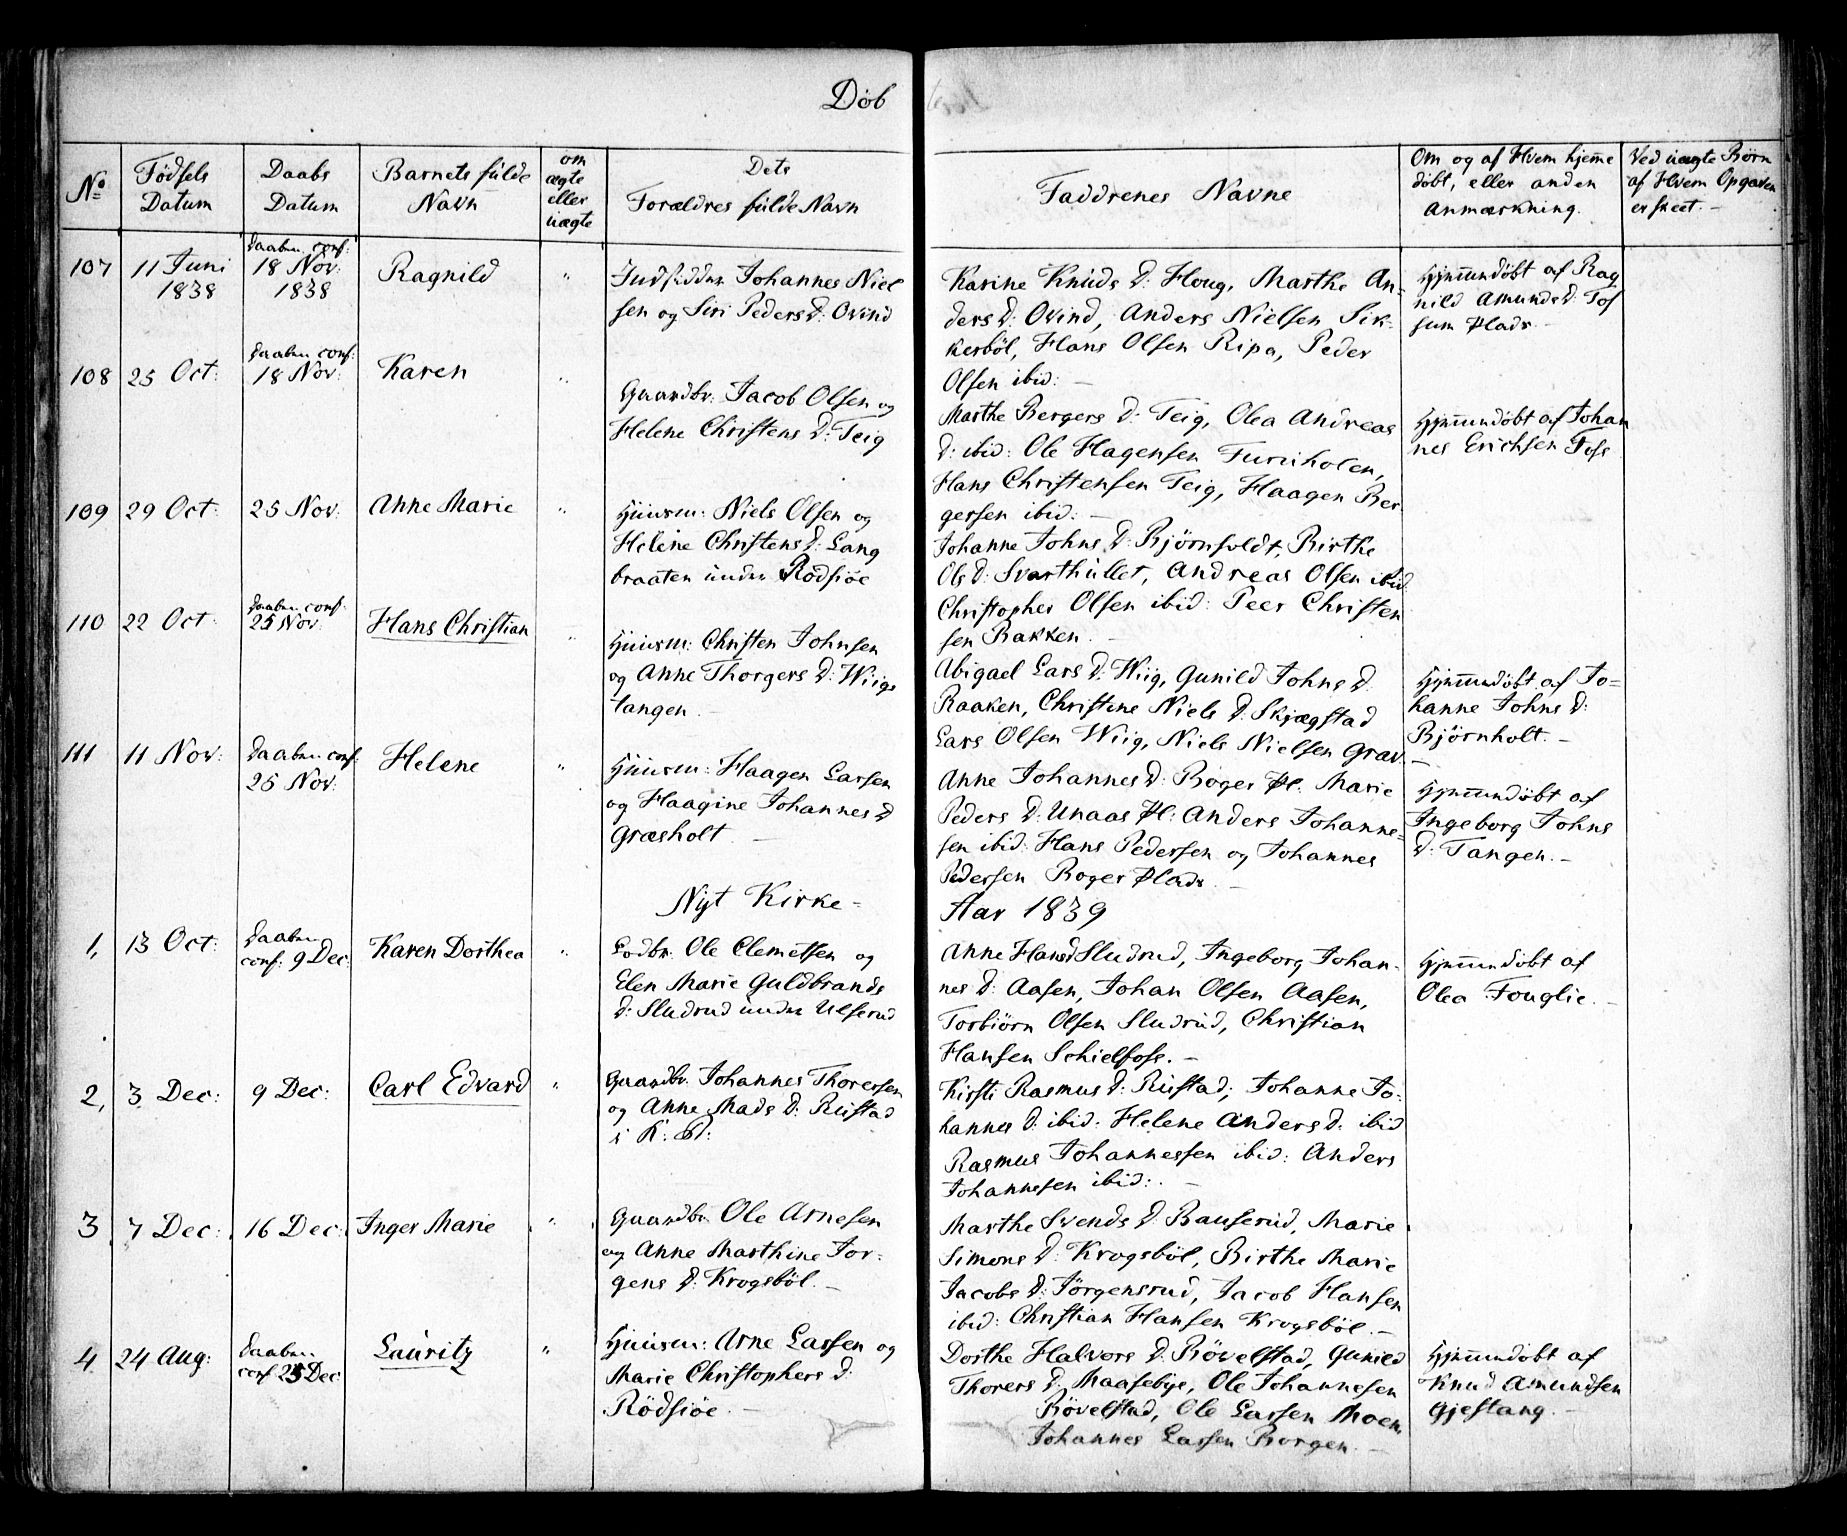 Döb
No
Fødsels
Datum
Daabs
Datum
Barnets fulde
Navn
om
ægte
eller
uægte
Dets
Forældres fulde Navn
Faddrenes Navne
Om og af Hvem hjemme
döbt, eller anden
Anmærkning.
Ved uægte Børn
af Hvem Opgaven
er skeet.
107
11 Juni
1838
Daaben conf:
18 Nov:
1838
Ragnild
"
Indsidder Johannes Niel
sen og Siri Peders D: Ovind
Karine Knuds D: Houg, Marthe An-
ders D: Ovind, Anders Nielsen Sik-
kerböl, Hans Olsen Ripa, Peder
Olsen ibid: —
Hjemmedöbt af Rag
nild Amunds D: Fos
sum Plads —
108
25 Oct:
Daaben conf:
18 Nov:
Karen
"
Gaardbr: Jacob Olsen og
Helene Christens D: Teig
Marthe Bergers D: Teig, Olea Andreas
D: ibid: Ole Hagensen Furuholen,
Hans Christensen Teig, Haagen Ber
gersen ibid: —
Hjemmedöbt af Johan
nes Erichsen Foss
109
29 Oct:
25 Nov:
Anne Marie
"
Huusm: Niels Olsen og
Helene Christens D: Lang
braaten under Rödsiöe
Johanne Johns D: Björnfoldt, Birthe
Ols D: Svarthullet, Andreas Olsen ibid
Christopher Olsen ibid: Peer Christen
sen Bakken. —
110
22 Oct:
Daaben conf:
25 Nov:
Hans Christian
"
Huusm: Christen Johnsen
og Anne Thorgers D: Wiigs
tangen —
Abigael Lars D: Wiig, Gunild Johns D:
Raaken, Christine Niels D: Skjægstad
Lars Olsen Wiig, Niels Nielsen Grav. —
Hjemmedöbt af Jo=
hanne Johns D:
Björnholt. —
111
11 Nov:
Daaben conf:
25 Nov:
Helene
"
Huusm: Haagen Larsen
og Haagine Johannes D
Græsholt —
Anne Johannes D: Boger Pl: Marie
Peders D: Unaas Pl: Anders Johanne=
sen ibid: Hans Pedersen og Johannes
Pedersen Boger Plads. —
Hjemmedöbt af
Ingeborg Johns
D: Tangen. —
Nyt Kirke-
Aar 1839
1,
13 Oct:
Daaben
conf: 9 Dec:
Karen Dorthea
"
Lodbr. Ole Clemetsen og
Elen Marie Guldbrands
D: Sludrud under Ulserud
Anne Hans D Sludrud, Ingeborg Johan-
nes D: Aasen, Johan Olsen Aasen,
Torbiörn Olsen Sludrud, Christian
Hansen Schielfoss. —
Hjemmedöbt af
Olea Fouglie. —
2,
3 Dec:
9 Dec:
Carl Edvard
"
Gaardbr. Johannes Thoresen
og Anne Mads D: Rustad
i K: Pl:
Kirsti Rasmus D: Rustad, Johanne Jo-
hannes D: ibid: Helene Anders D: ibid
Rasmus Johannessen ibid: Anders
Johannesen ibid: —
3
7 Dec:
16 Dec:
Inger Marie
"
Gaardbr. Ole Arnesen
og Anne Marthine Jor-
gens D: Krogsböl. —
Marthe Svends D: Bauserud, Marie
Simons D: Krogsböl, Birthe Marie
Jacobs D: Jörgensrud, Jacob Hansen
ibid: Christian Hansen Krogsböl. —
4
24 Aug:
Daaben
conf 25 Dec
Lauritz
"
Huusm: Arne Larsen og
Marie Christophers D:
Rödsiöe. —
Dorthe Halvors D: Rövelstad, Gunild
Thorers D: Maasebye, Ole Johannesen
Rövelstad, Ole Larsen Moen,
Johannes Larsen Borgen. —
Hjemmedöbt af
Knud Amundsen
Gjestang. —